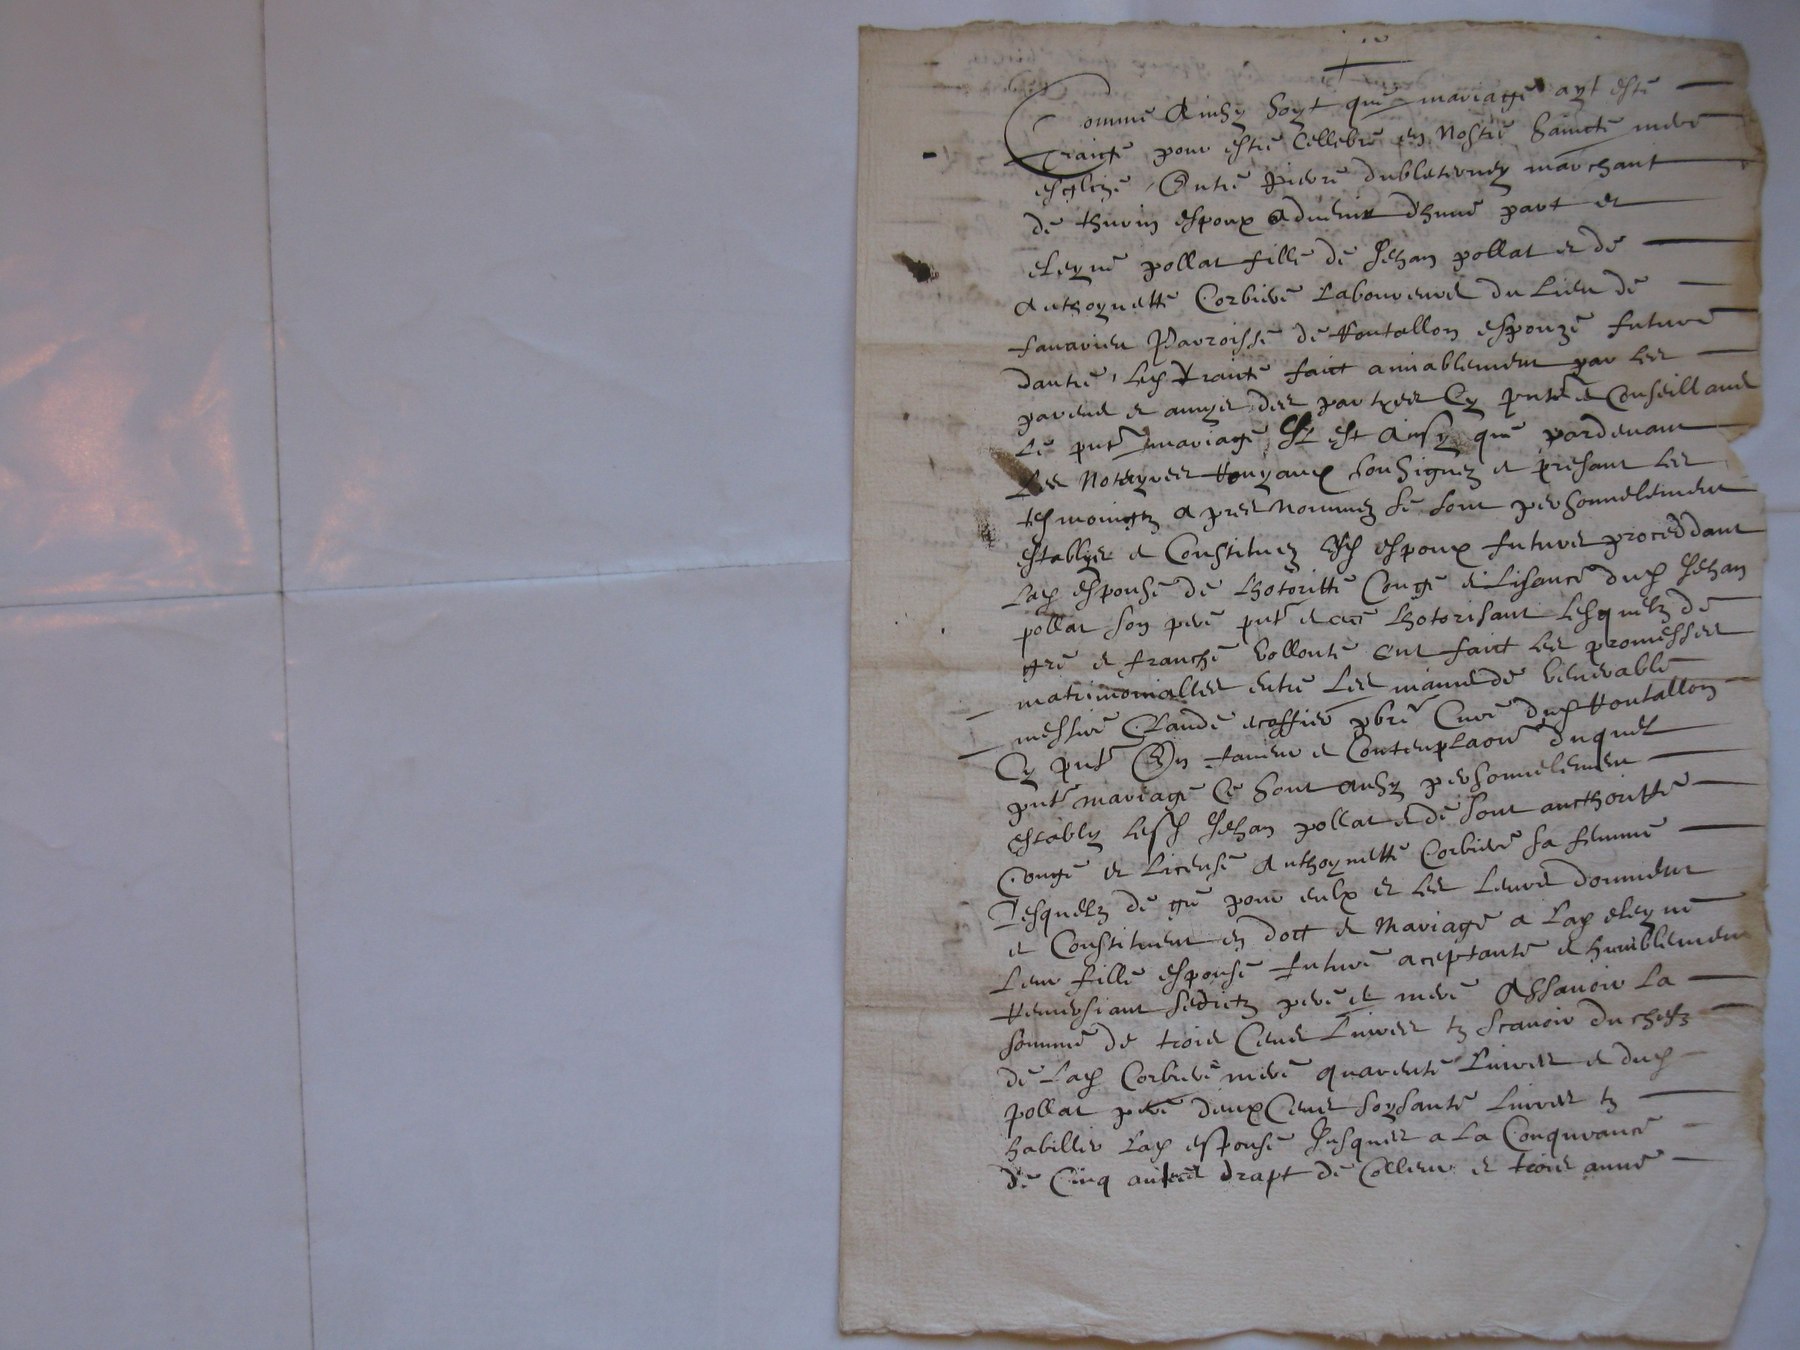 Comme Ainsy soyt que mariage ayt esté
Traicte pour estre cellebré en Nostre Saincte mere
esglize Entre pierre dubleternez marchant
de thurin espoux advenir dhune part et
eleyne pollat fille de Jehan pollat et de
Anthoynette Corbiere laboureurs du lieu de
Parroisse de Rontallon espouze future
dautre, led traicte faict amiablement par les
parens et amys des partyes Cy pntz et Conseillans
le pnt mariage Il est Ainsy que pardevant
Les Noteyres Royaux soubsignez et presant les
tesmoingz apres nommez se sont personnelement
establys et Constituez lesd espoux futurs procedant
lad espouse de lhotoritte Conge et lisance dud Jehan
pollat son pere pnt et lhotorisant lesquelz de
gre et franche vollonte ont faict les promesses
matrimonialles entre les mains de venerable
messire Claude escoffier pbre Cure dud Rontallon
Cy pnt En faveur et Contemplaon duquel
pnt mariage Ce sont ausy personnelement
estably lesd Jehan pollat et de sont aucthoritte
Conge et license Anthoynette Corbiere sa femme
Lesquelz de gre pour eulx et les leurs donnent
et Constituent en dott et Mariage a lad eleyne
leur fille espouse future aceptante et humblement
Remersiant sedictz pere et mere Assavoir la
somme de trois Cens Livres tz scavoir du chefz
de lad Corbiere mere quarente Livres et dud
pollat pere deux Cens soysante livres tz
habillier lad espouse Jusques a la Conqurance
de Cinq aulnes drapt de Colleur et trois aune